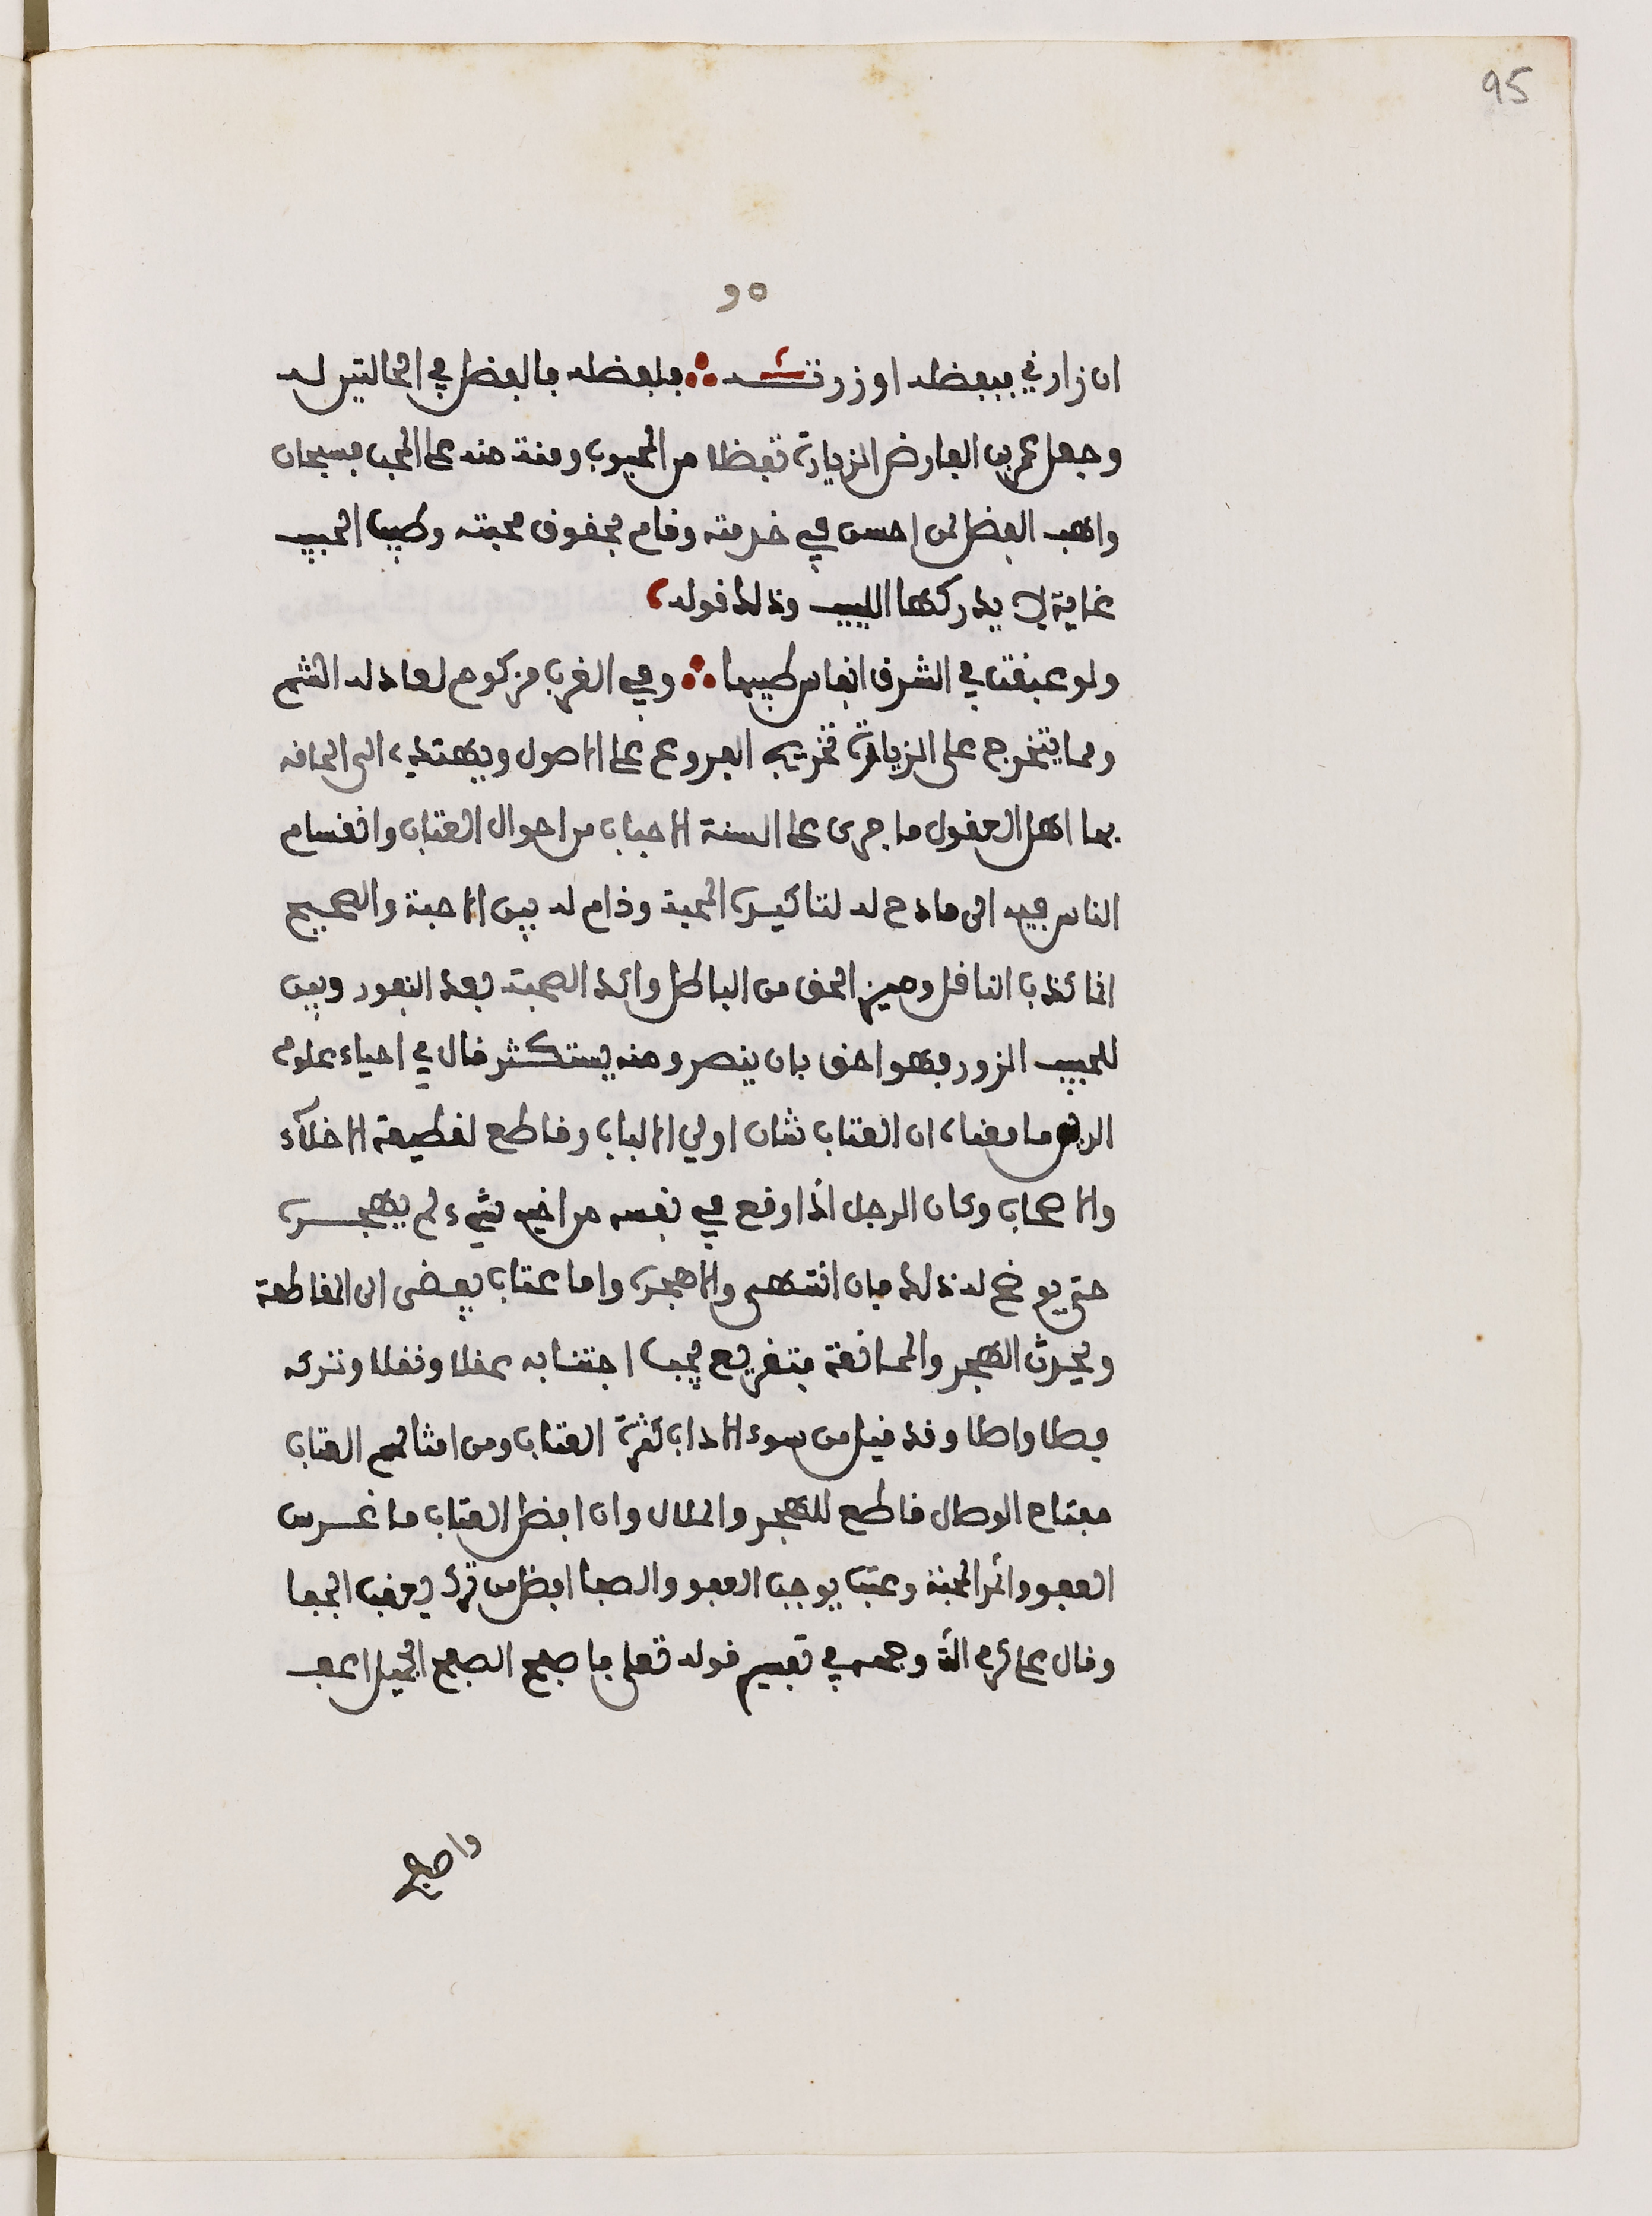 95
٩٥
ان زارني فبفضله او زرته ∴ فلفضله فالفضل في الحالتين له
وجعل عمر بن الفارض الزيارة تفضلا من المحبوب ومنة منه على المحب فسبحان
واهب الفضل لمن احسن في خدمته وقام بحقوق محبته وطيب الحبيب
غاية لا يدركها اللبيب وذلك قوله،
ولو عبقت في الشرق انفاس طيبها ∴ وفي الغرب مزكوم لعاد له الشم
ومما يتخرج على الزيارة تخريج الفروع على الاصول ويهتدي الى الحاقه
بها اهل العقول ما جرى على السنة الاحباب من احوال العتاب وانقسام
الناس فيه الى مادح له لتاكيد المحبة وذام له بين الاحبة والصحيح
اذا كذب الناقل وميز الحق من الباطل واكد الصحبة بعد النفور وبين
للحبيب الزور فهو احق بان ينصر ومنه يستكثر قال في احياء علوم
الدين ما معناه ان العتاب شان اولي الالباب وقاطع لقطيعة الاخلاء
والاصحاب وكان الرجل اذا وقع في نفسه من اخيه شيء لم يهجره
حتى يوضح له ذلك فان انتهى والا هجره واما عتاب يفضي الى المقاطعة
ويحدث الهجر والممانعة فتقريع يجب اجتنابه عقلا ونقلا وتركه
فصلا واصلا وقد قيل من سوء الاداب كثرة العتاب ومن امثالهم العتاب
مفتاح الوصال قاطع للهجر والملال وان افضل العتاب ما غرس
العفو واثمر المحبة وعتب يوجب العفو والصفا افضل من ترك يعقب الجفا
وقال علي كرم الله وجهه في تفسير قوله تعلى فاصفح الصفح الجميل اعف
واصفح